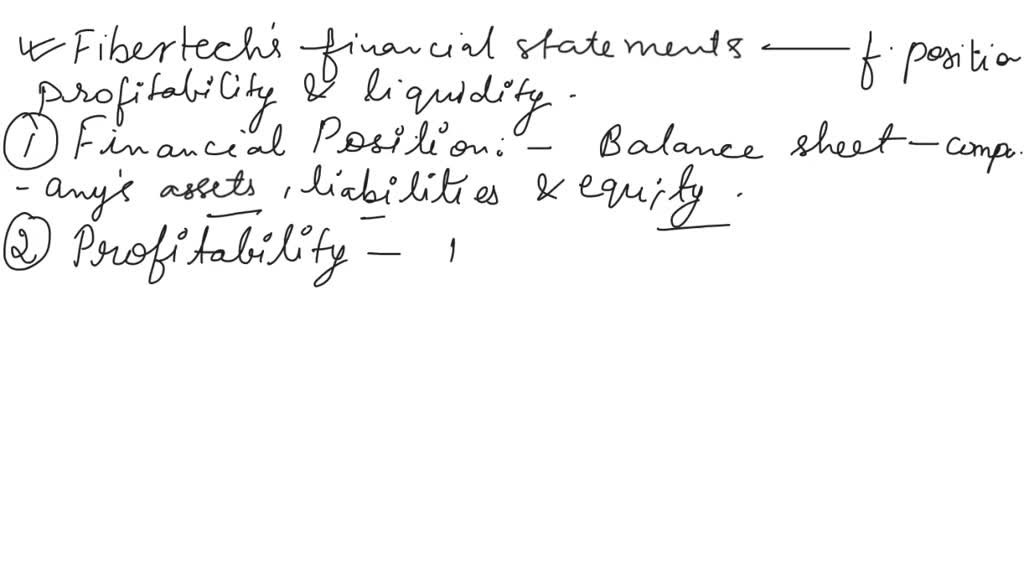 Fibertech's financial statements — f. positio
profitability & liquidity.
① Financial Position: - Balance sheet - comp.
- any's assets, liabilities & equity.
② Profitability - I